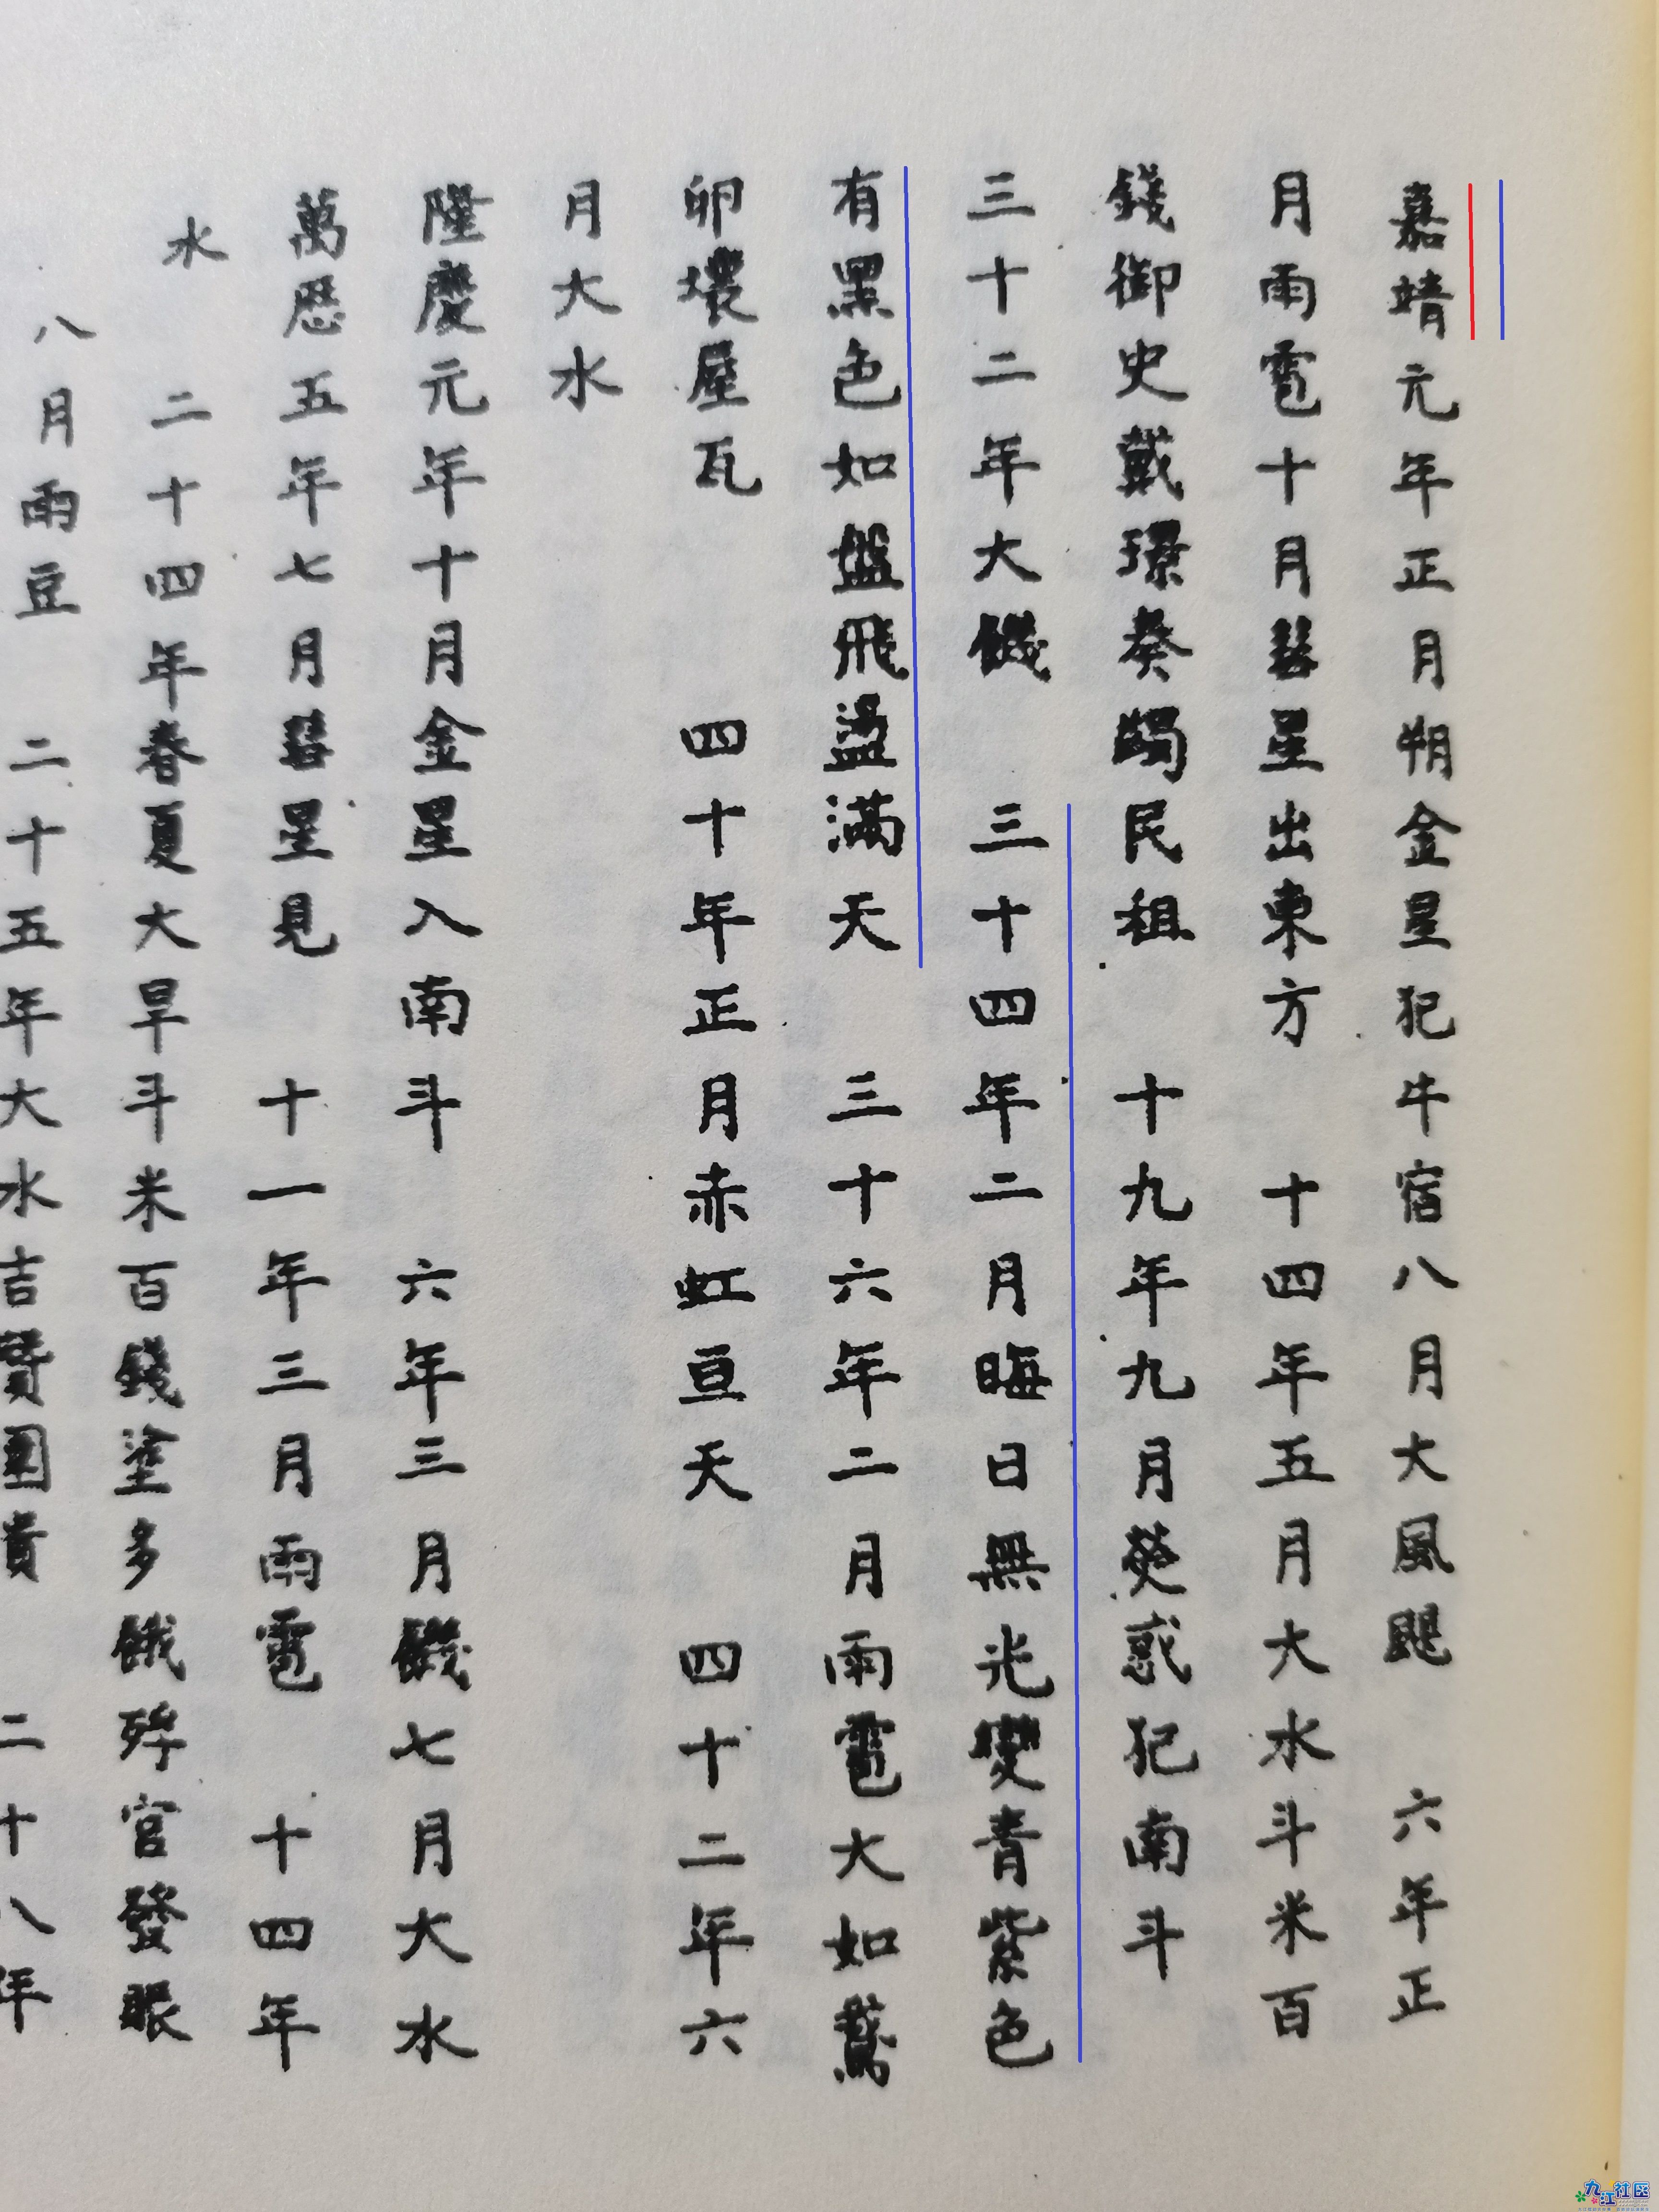 嘉靖元年正月朔金星犯牛宿八月大風颶 六年正
月雨雹十月彗星出東方 十四年五月大水斗米百
錢御史戴璟奏蠲民租 十九年九月熒惑犯南斗
三十二年大饑 三十四年二月晦日無光變青紫色
有黑色如盤飛盪滿天 三十六年二月雨雹大如鵞
卵壞屋瓦 四十年正月赤虹亘天 四十二年六
月大水
隆慶元年十月金星入南斗 六年三月饑七月大水
萬歷五年七月彗星見 十一年三月雨雹 十四年
水 二十四年春夏大旱斗米百錢塗多餓殍官發賑
八月雨豆 二十五年大水吉 二十八年
九江社区